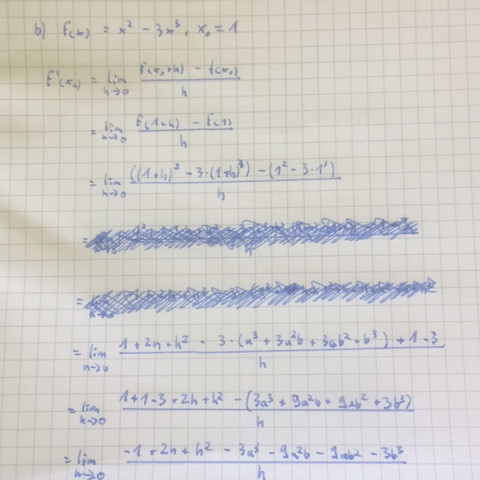 b) f(x) = x² - 3x³, x₀ = 1
f'(x₀) = lim h→0 (f(x₀+h) - f(x₀)) / h
= lim h→0 (f(1+h) - f(1)) / h
= lim h→0 (((1+h)² - 3·(1+h)³) - (1² - 3·1³)) / h
=
=
= lim h→0 (1 + 2h + h² - 3·(a³ + 3a²b + 3ab² + b³) + 1 - 3) / h
= lim h→0 (1 + 1 - 3 + 2h + h² - (3a³ + 9a²b + 9ab² + 3b³)) / h
= lim h→0 (-1 + 2h + h² - 3a³ - 9a²b - 9ab² - 3b³) / h